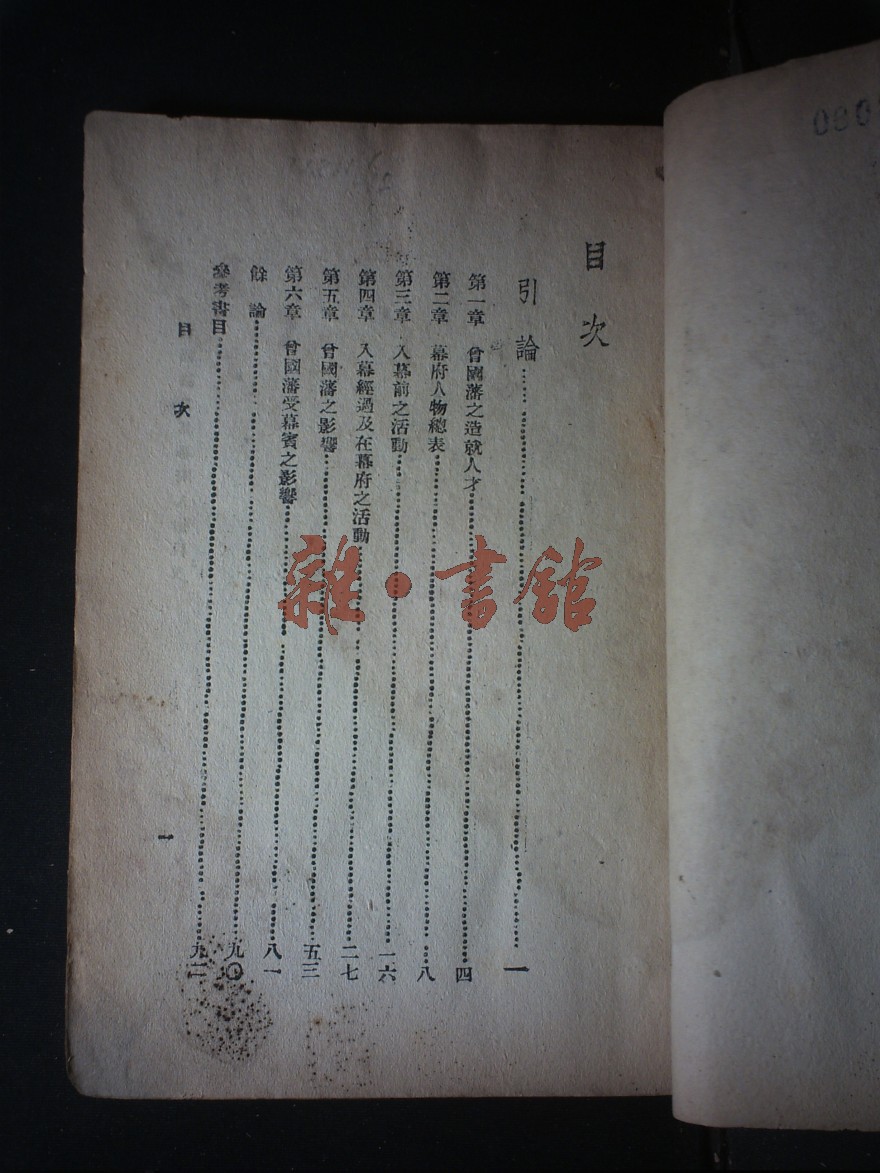 目次
引論……一
第一章　曾國藩之造就人才……四
第二章　幕府人物總表……八
第三章　入幕前之活動……一六
第四章　入幕經過及在幕府之活動……二七
第五章　曾國藩之影響……五三
第六章　曾國藩受幕賓之影響……八一
餘論……九〇
參考書目……九二
目次
一
雜·書館